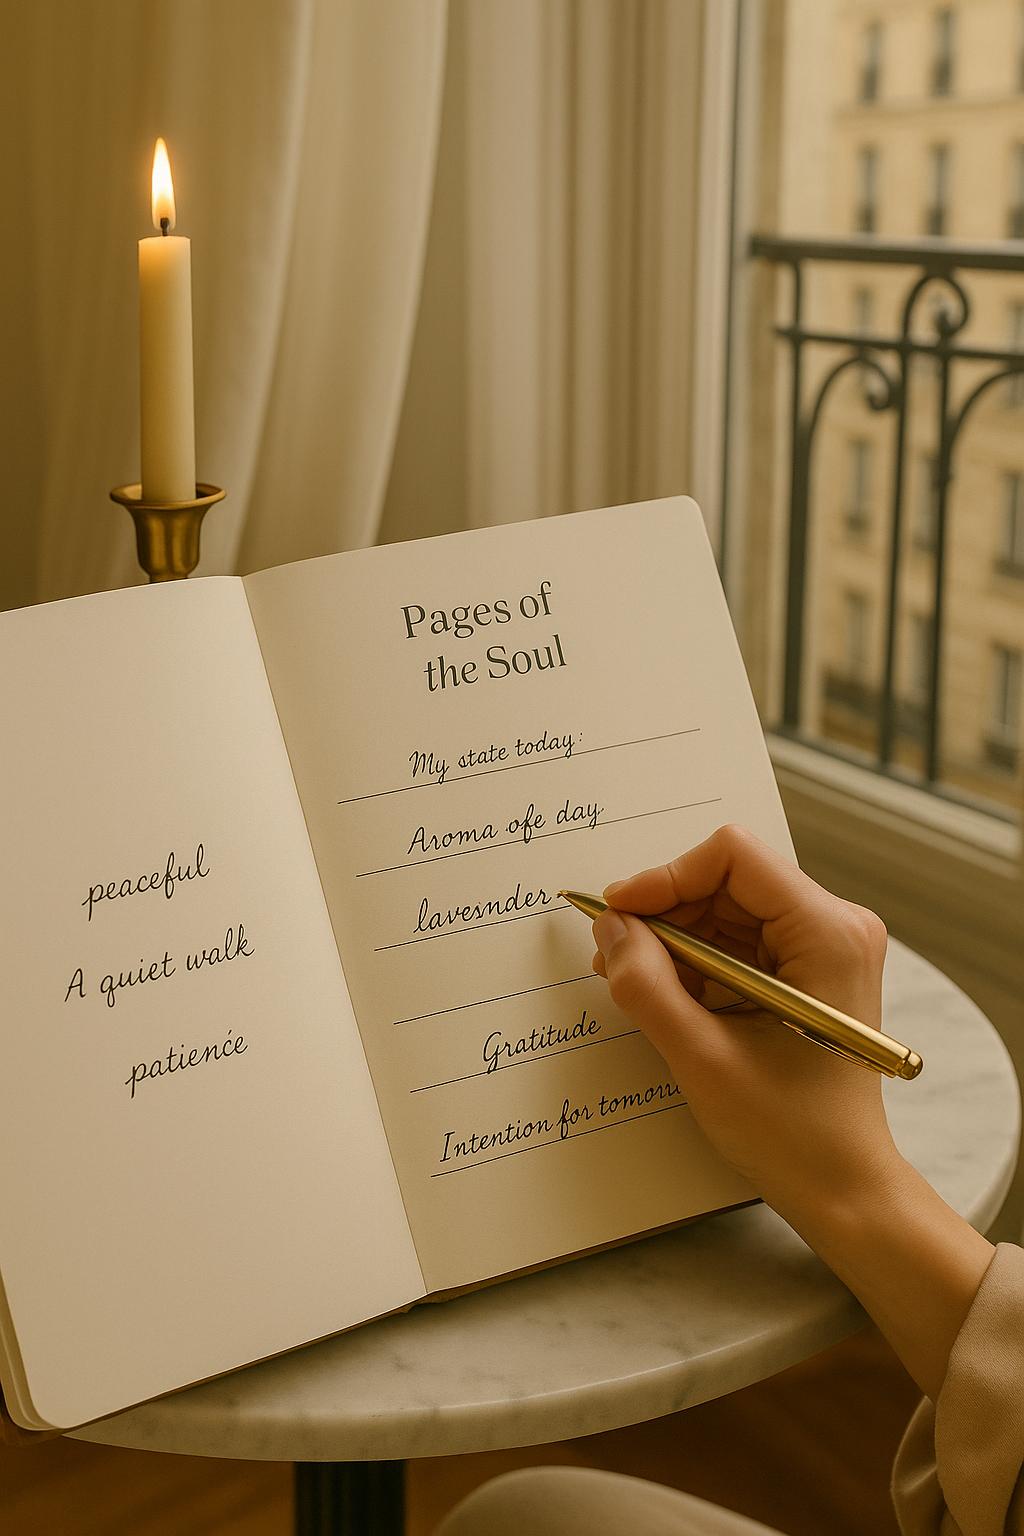 peaceful
A quiet walk
patiencé
Pages of
the Soul
My state today:
Aroma ofe day.
lavesnder
Gratitude
Intention for